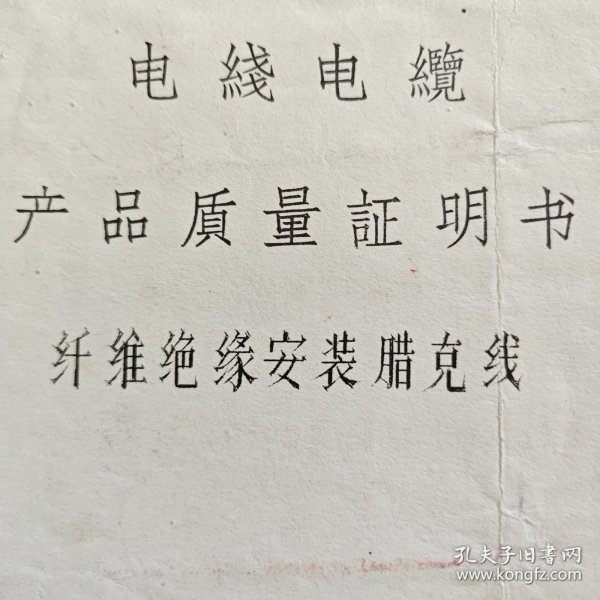 电綫电纜
产品质量証明书
纤维绝缘安装腊克线
孔夫子旧书网
www.kongfz.com